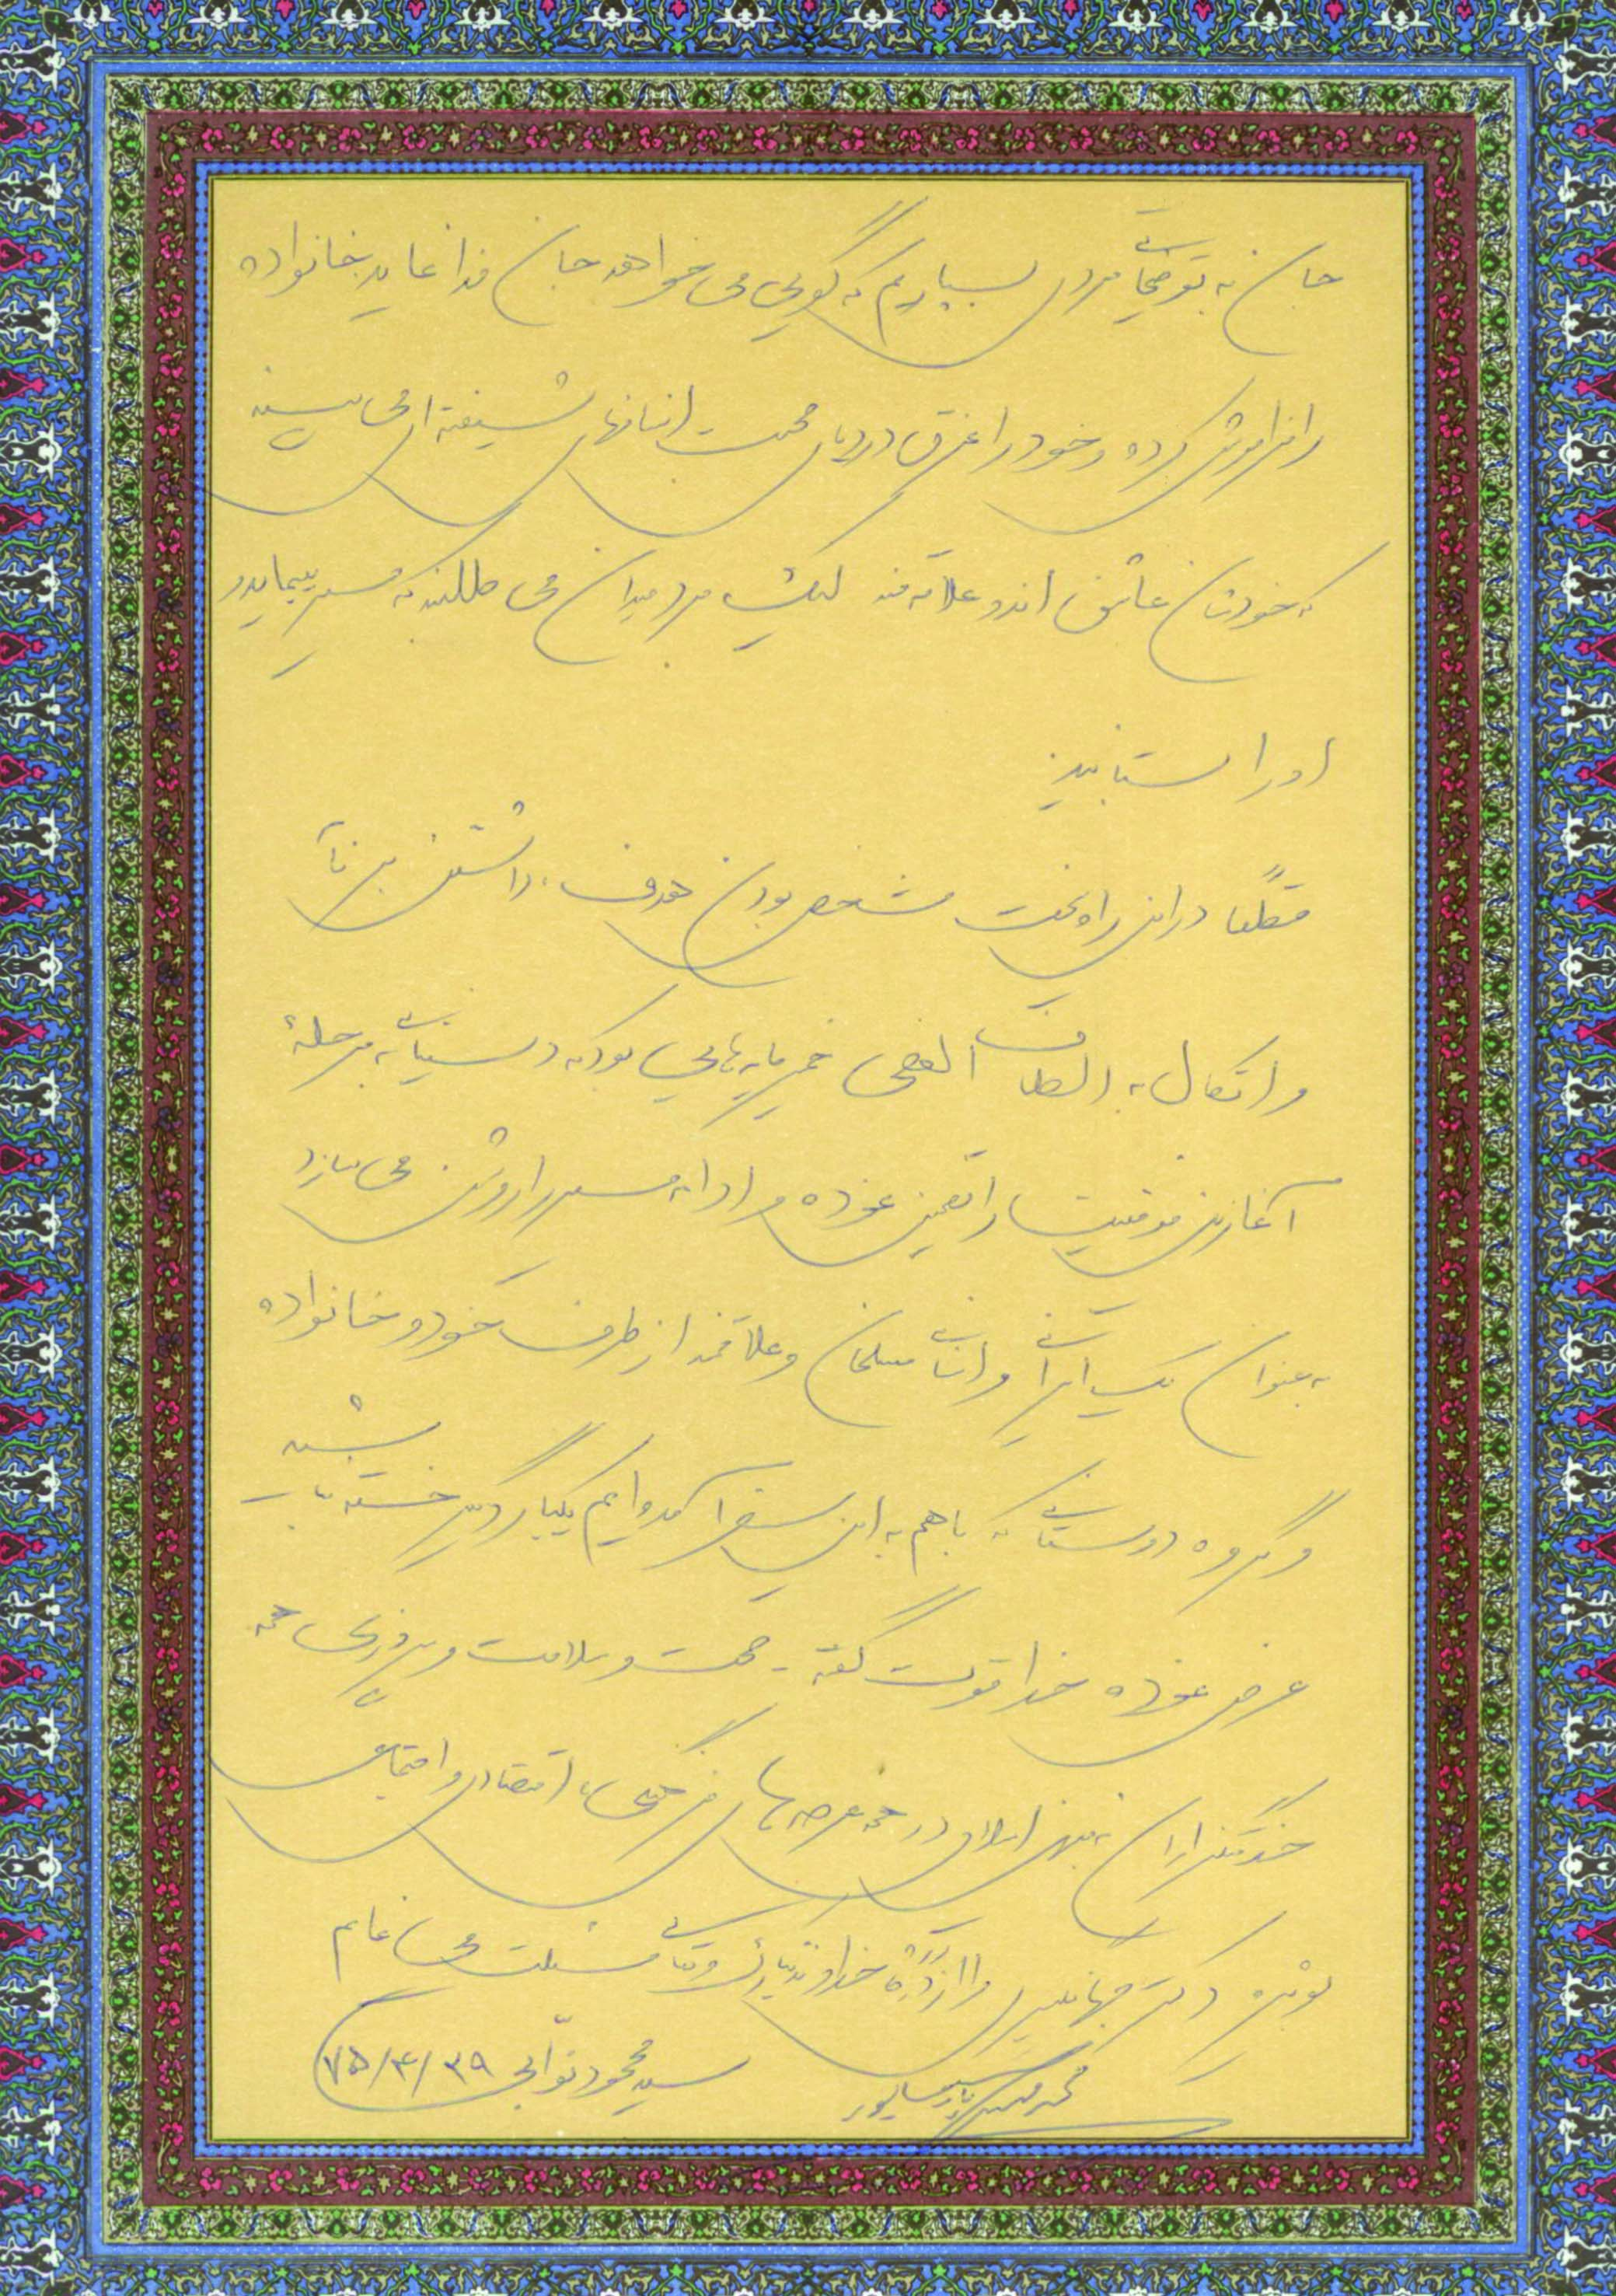 جان به توضیحات مردی بسپاریم که گویی می خواهد جان فدا نماید خانواده
را فراموش کرده و خود را غرق در دریای محبت انسانهای شیفته ای می بیند
که خودشان عاشق اند و علاقه مند لیک مرد میدان می طلبند که مسیر بپیماید و
او را بستایید
قطعاً در این راه سخت مشخص بودن هدف، داشتن برنامه
و اتکال به الطاف الهی خمیرمایه هایی بود که دستیابی به مرحله
آغازین موفقیت را تضمین نموده و ادامه مسیر را روشن می سازد
به عنوان یک ایرانی و انسانی مسلمان و علاقمند از طرف خود و خانواده
و گروه دوستانی که با هم به این سفر آمده ایم یکبار دیگر خسته نباشید
عرض نموده خدا قوت گفته - صحت و سلامت و پیروزی همه
خدمتگزاران به میهن اسلامی در همه عرصه های فرهنگی، اقتصادی و اجتماعی
بویژه دکتر جهانگیری را از درگاه خداوند تبارک و تعالی مسئلت می نمایم
سید محمود نوابی ۷۵/۴/۲۹